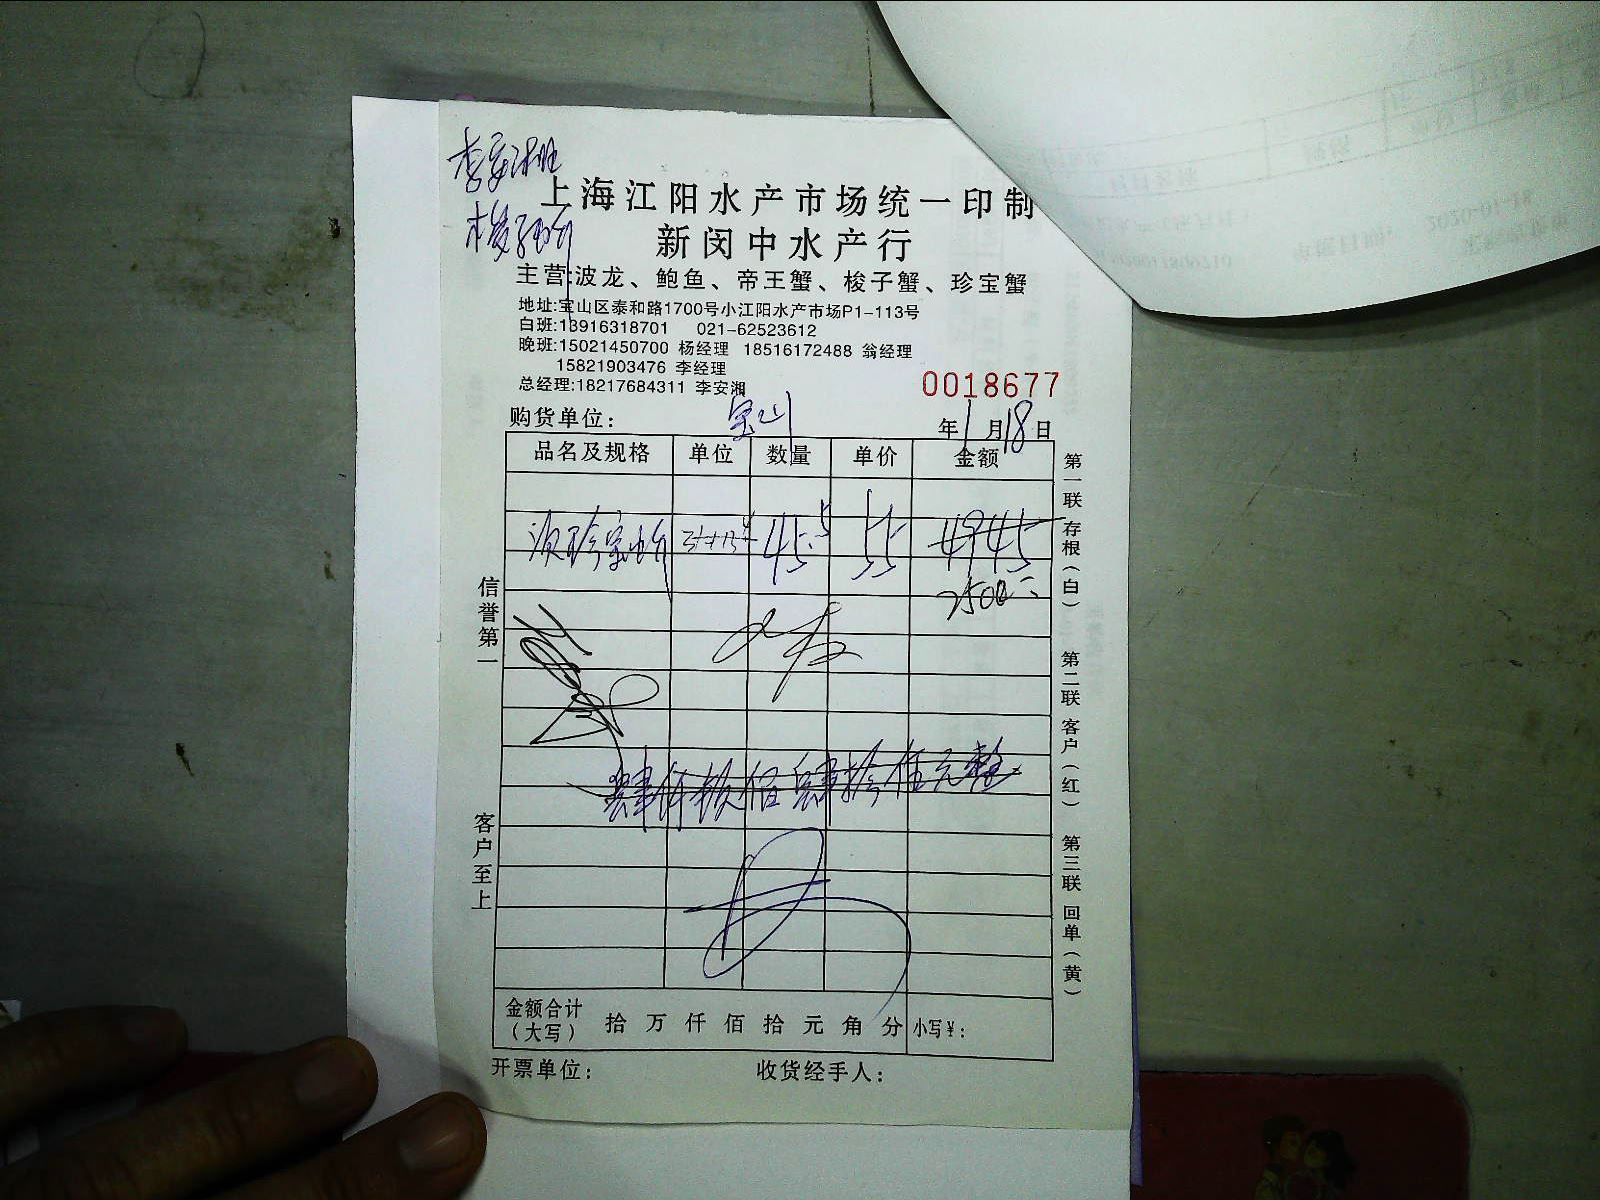 上海江阳水产市场统一印制
新闵中水产行
主营:波龙、鲍鱼、帝王蟹、梭子蟹、珍宝蟹
地址:宝山区泰和路1700号小江阳水产市场P1-113号
白班:13916318701 021-62523612
晚班:15021450700 杨经理 18516172488 翁经理
15821903476 李经理
总经理:18217684311 李安湘
0018677
购货单位: 宝山 年1月18日
品名及规格 单位 数量 单价 金额
45 55 4945
2500
肆仟玖佰肆拾伍元整
金额合计（大写） 拾 万 仟 佰 拾 元 角 分 小写¥:
开票单位: 收货经手人:
信誉第一
客户至上
第一联 存根（白） 第二联 客户（红） 第三联 回单（黄）